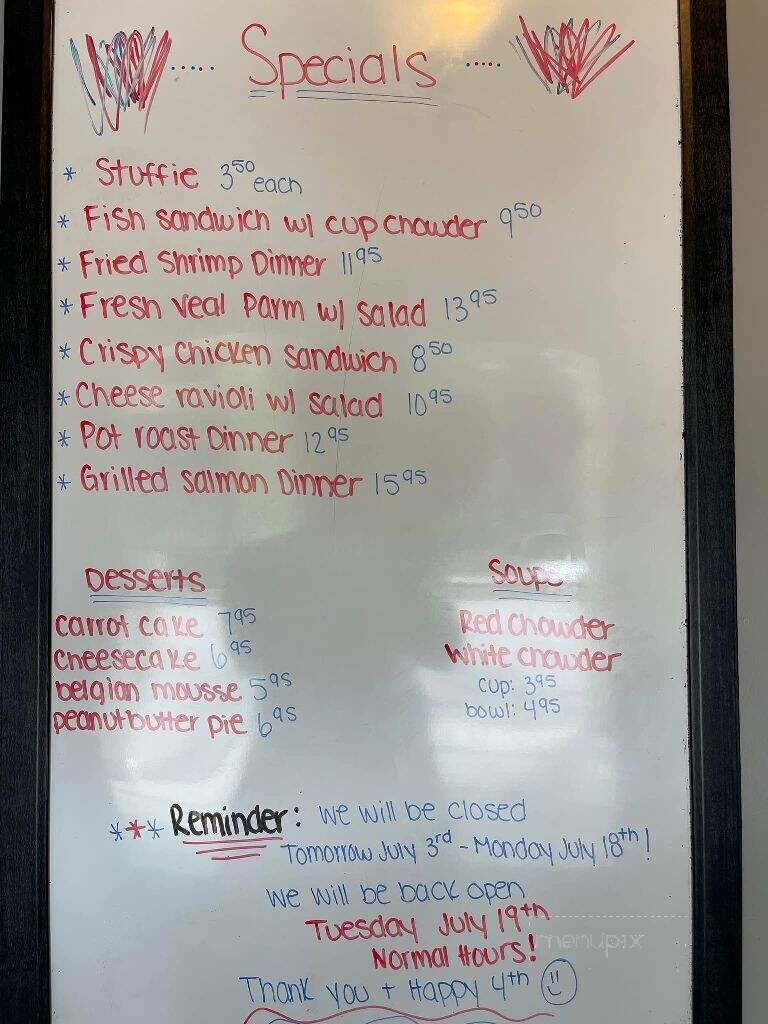 ..... Specials .....
* Stuffie 3⁵⁰ each
* Fish sandwich w/ cup chowder 9⁵⁰
* Fried Shrimp Dinner 11⁹⁵
* Fresh veal Parm w/ salad 13⁹⁵
* Crispy chicken sandwich 8⁵⁰
* Cheese ravioli w/ salad 10⁹⁵
* Pot roast Dinner 12⁹⁵
* Grilled Salmon Dinner 15⁹⁵
Desserts
carrot cake 7⁹⁵
cheesecake 6⁹⁵
belgian mousse 5⁹⁵
peanutbutter pie 6⁹⁵
Soups
Red Chowder
White Chowder
cup: 3⁹⁵
bowl: 4⁹⁵
*** Reminder: we will be closed
Tomorrow July 3rd - Monday July 18th!
we will be back open
Tuesday July 19th
Normal Hours!
Thank you + Happy 4th
menupix